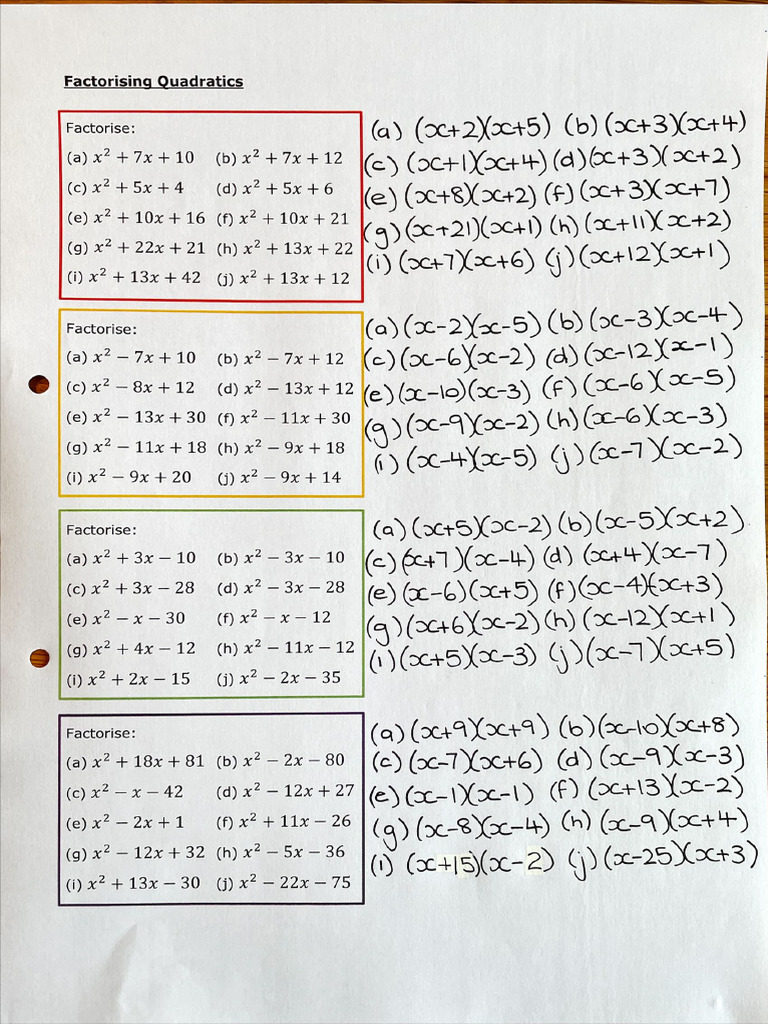 Factorising Quadratics
Factorise:
(a) x² + 7x + 10 (b) x² + 7x + 12
(c) x² + 5x + 4 (d) x² + 5x + 6
(e) x² + 10x + 16 (f) x² + 10x + 21
(g) x² + 22x + 21 (h) x² + 13x + 22
(i) x² + 13x + 42 (j) x² + 13x + 12
(a) (x+2)(x+5) (b) (x+3)(x+4)
(c) (x+1)(x+4) (d) (x+3)(x+2)
(e) (x+8)(x+2) (f) (x+3)(x+7)
(g) (x+21)(x+1) (h) (x+11)(x+2)
(i) (x+7)(x+6) (j) (x+12)(x+1)
Factorise:
(a) x² − 7x + 10 (b) x² − 7x + 12
(c) x² − 8x + 12 (d) x² − 13x + 12
(e) x² − 13x + 30 (f) x² − 11x + 30
(g) x² − 11x + 18 (h) x² − 9x + 18
(i) x² − 9x + 20 (j) x² − 9x + 14
(a) (x−2)(x−5) (b) (x−3)(x−4)
(c) (x−6)(x−2) (d) (x−12)(x−1)
(e) (x−10)(x−3) (f) (x−6)(x−5)
(g) (x−9)(x−2) (h) (x−6)(x−3)
(i) (x−4)(x−5) (j) (x−7)(x−2)
Factorise:
(a) x² + 3x − 10 (b) x² − 3x − 10
(c) x² + 3x − 28 (d) x² − 3x − 28
(e) x² − x − 30 (f) x² − x − 12
(g) x² + 4x − 12 (h) x² − 11x − 12
(i) x² + 2x − 15 (j) x² − 2x − 35
(a) (x+5)(x−2) (b) (x−5)(x+2)
(c) (x+7)(x−4) (d) (x+4)(x−7)
(e) (x−6)(x+5) (f) (x−4)(x+3)
(g) (x+6)(x−2) (h) (x−12)(x+1)
(i) (x+5)(x−3) (j) (x−7)(x+5)
Factorise:
(a) x² + 18x + 81 (b) x² − 2x − 80
(c) x² − x − 42 (d) x² − 12x + 27
(e) x² − 2x + 1 (f) x² + 11x − 26
(g) x² − 12x + 32 (h) x² − 5x − 36
(i) x² + 13x − 30 (j) x² − 22x − 75
(a) (x+9)(x+9) (b) (x−10)(x+8)
(c) (x−7)(x+6) (d) (x−9)(x−3)
(e) (x−1)(x−1) (f) (x+13)(x−2)
(g) (x−8)(x−4) (h) (x−9)(x+4)
(i) (x+15)(x−2) (j) (x−25)(x+3)